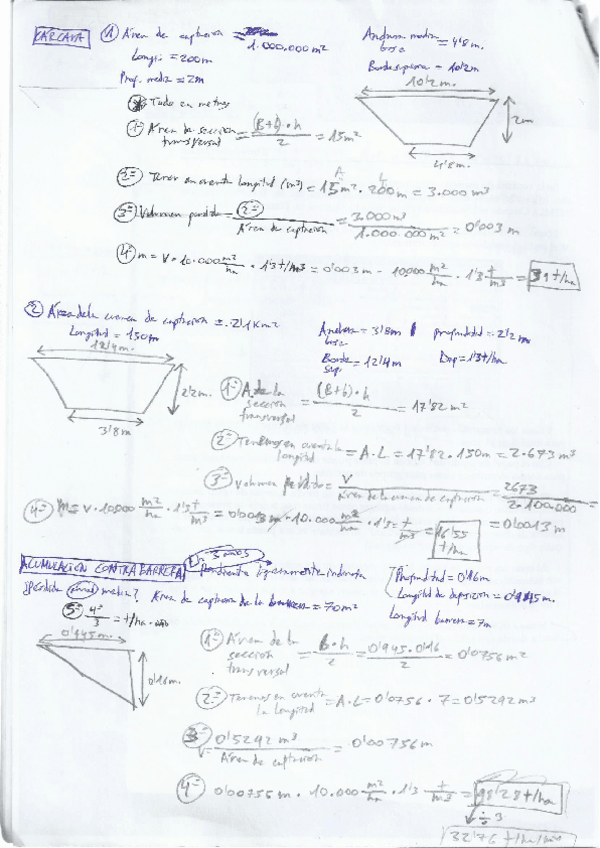 CÁRCAVA
① Área de captación = 1.000.000m²
Longi. = 200m
Prof. media = 2m
Anchura media base = 4'8m.
Borde superior = 10'2m
Todo en metros
10'2m.
2m
4'8m.
1º Área de sección transversal = (B+b)·h / 2 = 15m²
2º Tener en cuenta longitud (m³) = 15m² · 200m = 3.000m³
A L
3º Volumen perdido = 2º / Área de captación = 3.000m³ / 1.000.000m² = 0'003m
4º m = V · 10.000 m²/ha · 1'3 t/m³ = 0'003m · 10000 m²/ha · 1'3 t/m³ = 39 t/ha
② Área de la cuenca de captación = 2'1Km²
Longitud = 150m
Anchura base = 3'8m
profundidad = 2'2m
Borde sup. = 12'4m
Dap = 1'3t/ha
12'4m.
2'2m.
3'8m
1º A. de la sección transversal = (B+b)·h / 2 = 17'82m²
2º Tenemos en cuenta la longitud = A·L = 17'82·150m = 2.673m³
3º Volumen perdido = V / Área de la cuenca de captación = 2673 / 2.100.000 = 0'0013m
4º m = V·10000 m²/ha · 1'3 t/m³ = 0'0013m · 10.000 m²/ha · 1'3 t/m³ = 16'55 t/ha
ACUMULACIÓN CONTRA BARRERA
En 3 años
Pendiente ligeramente inclinada
Profundidad = 0'16m
Longitud de deposición = 0'945m.
Longitud barrera = 7m
¿Perdida anual media? Área de captura de la barrera = 70m²
5º 4º/3 = t/ha·año
0'945m.
0'16m.
1º Área de la sección transversal = B·h / 2 = 0'945·0'16 / 2 = 0'0756m²
2º Tenemos en cuenta la longitud = A·L = 0'0756 · 7 = 0'5292m³
3º V = 0'5292m³ / Área de captación = 0'00756m
4º 0'00756m · 10.000 m²/ha · 1'3 t/m³ = 98'28 t/ha
÷ 3
32'76 t/ha/año